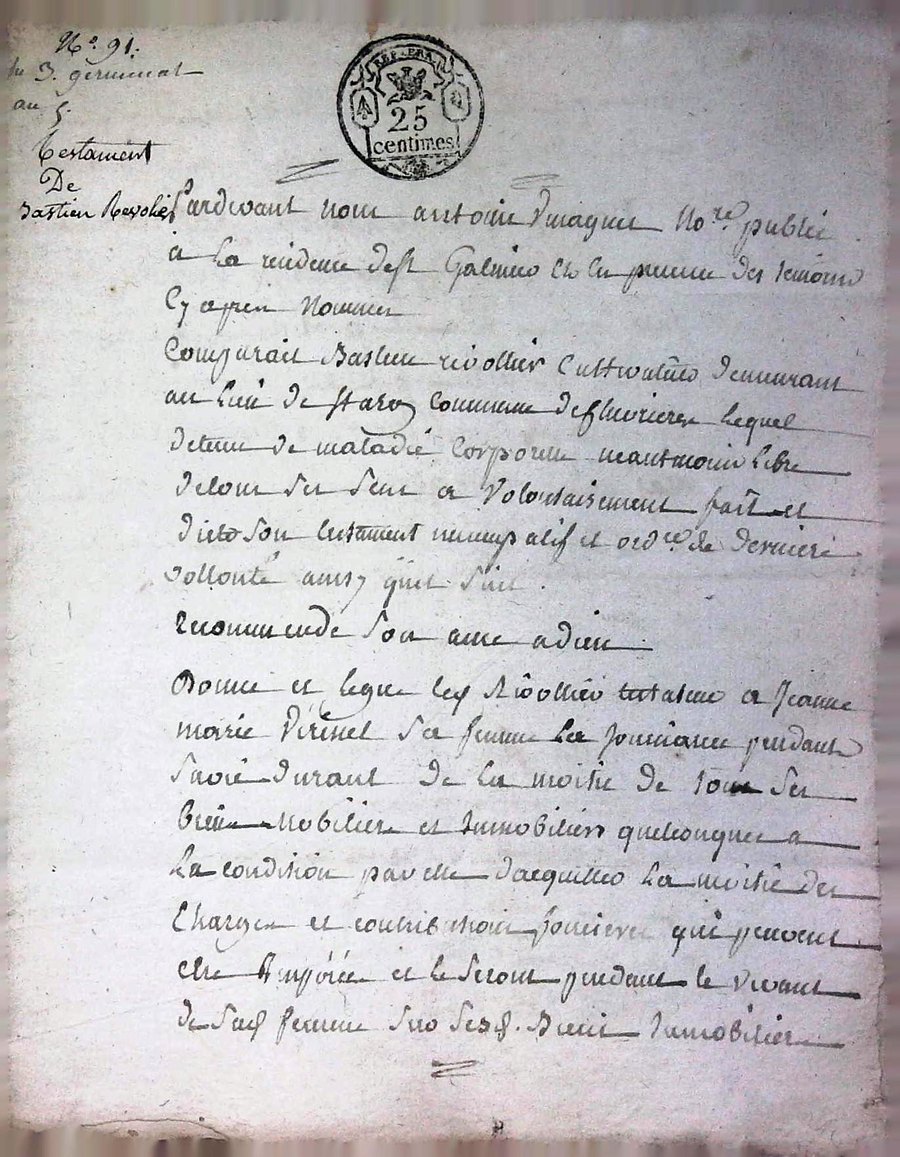 N.º 91.
du 3. germinal
an 5.
Testament
De
Bastien Revolier
REP. FRA.
25
centimes
Pardevant nous antoine No.re public
a La residence de st Galmier et en presence des temoins
Cy apres Nommes
Comparait Bastien rivollier Cultivateur demeurant
au Lieu de commune de lequel
detenu de maladie Corporelle neantmoins libre
de tous ses sens a volontairement fait et
dicté son testament nuncupatif et ord.ce de derniere
vollonté ainsy quil suit.
recommende son ame a dieu
Donne et legue led Rivollier testateur a Jeanne
marie Virinel sa femme La jouissance pendant
sa vie durant de la moitie de tous ses
biens Mobiliers et Immobiliers quelconques a
La condition par elle d'acquitter La moitié des
Charges et contributions foncieres qui peuvent
etre Imposées et le seront pendant le vivant
de sad femme sur sesd. Biens Immobiliers